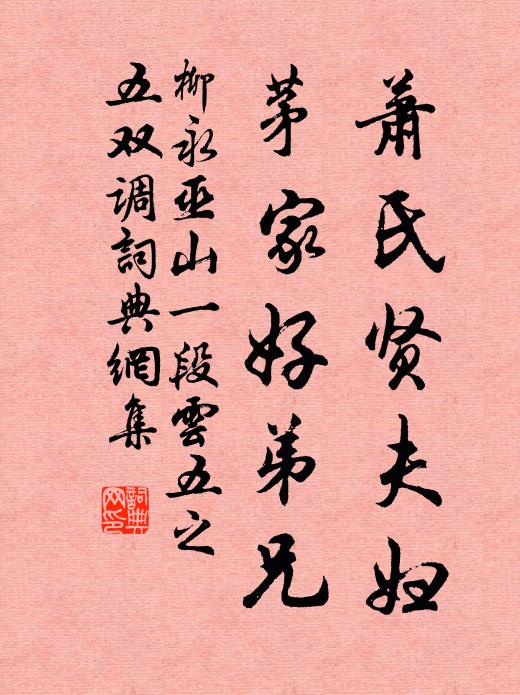 萧氏贤夫妇
茅家好弟兄
柳永巫山一段雲五之
五双调詞典網集
詞典
网印